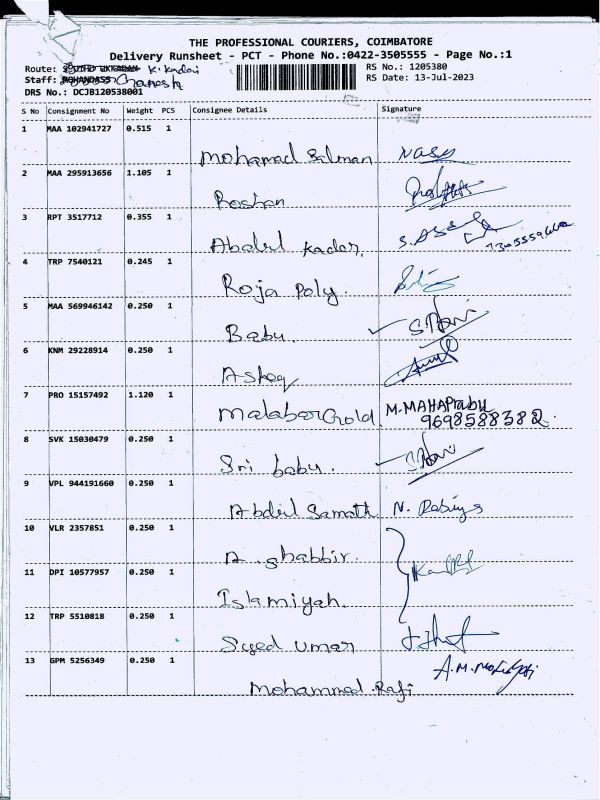 THE PROFESSIONAL COURIERS, COIMBATORE
Delivery Runsheet - PCT - Phone No.:0422-3505555 - Page No.:1
Route: K. Kadai RS No.: 1205380
Staff: RS Date: 13-Jul-2023
DRS No.: DCJB120538001
S No Consignment No Weight PCS Consignee Details Signature
1 MAA 102941727 0.515 1
Mohamad Salman
2 MAA 295913656 1.105 1
Roshan
3 RPT 3517712 0.355 1
Abdul Kadar.
4 TRP 7540121 0.245 1
Roja Poly.
5 MAA 569946142 0.250 1
Babu.
6 KNM 29228914 0.250 1
Ashaq
7 PRO 15157492 1.120 1
Malabar Gold. M. MAHAPrabu
9698588382
8 SVK 15030479 0.250 1
Sri babu.
9 VPL 944191660 0.250 1
Abdul Samath
10 VLR 2357851 0.250 1
A. Shabbir.
11 DPI 10577957 0.250 1
Islamiyah.
12 TRP 5510818 0.250 1
Syed Umar
13 GPM 5256349 0.250 1
Mohammed Rafi